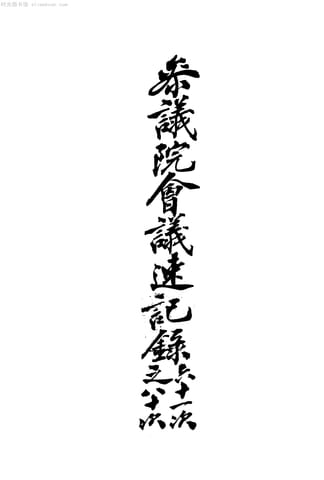 參議院會議速記錄
六十一次
之八十次